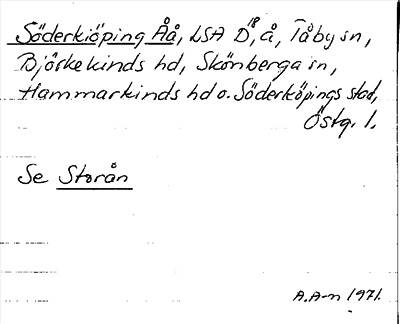 Söderkiöping Åå, LSA D18, å, Tåby sn,
Björkekinds hd, Skönberga sn,
Hammarkinds hd o. Söderköpings stad,
Östg. l.
Se Storån
A.A-n 1971.